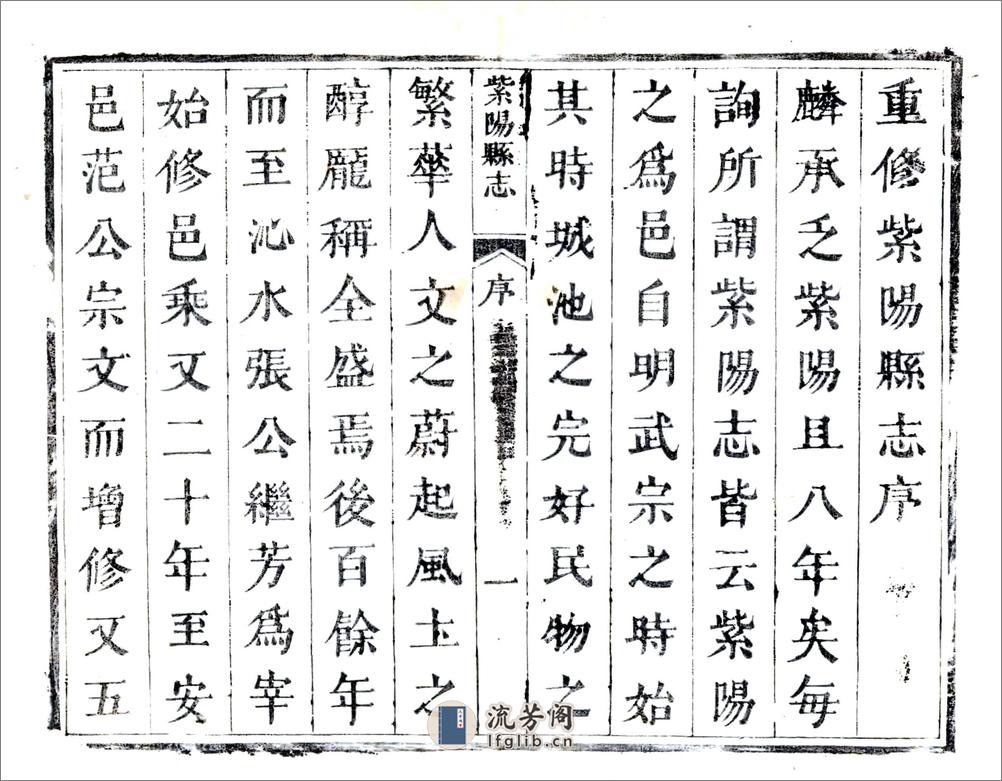 重修紫陽縣志序
麟承乏紫陽且八年矣每
詢所謂紫陽志皆云紫陽
之爲邑自明武宗之時始
其時城池之完好民物之
紫陽縣志
序
一
繁華人文之蔚起風土之
醇龐稱全盛焉後百餘年
而至沁水張公繼芳爲宰
始修邑乘又二十年至安
邑范公宗文而增修又五
流芳阁
lfglib.cn